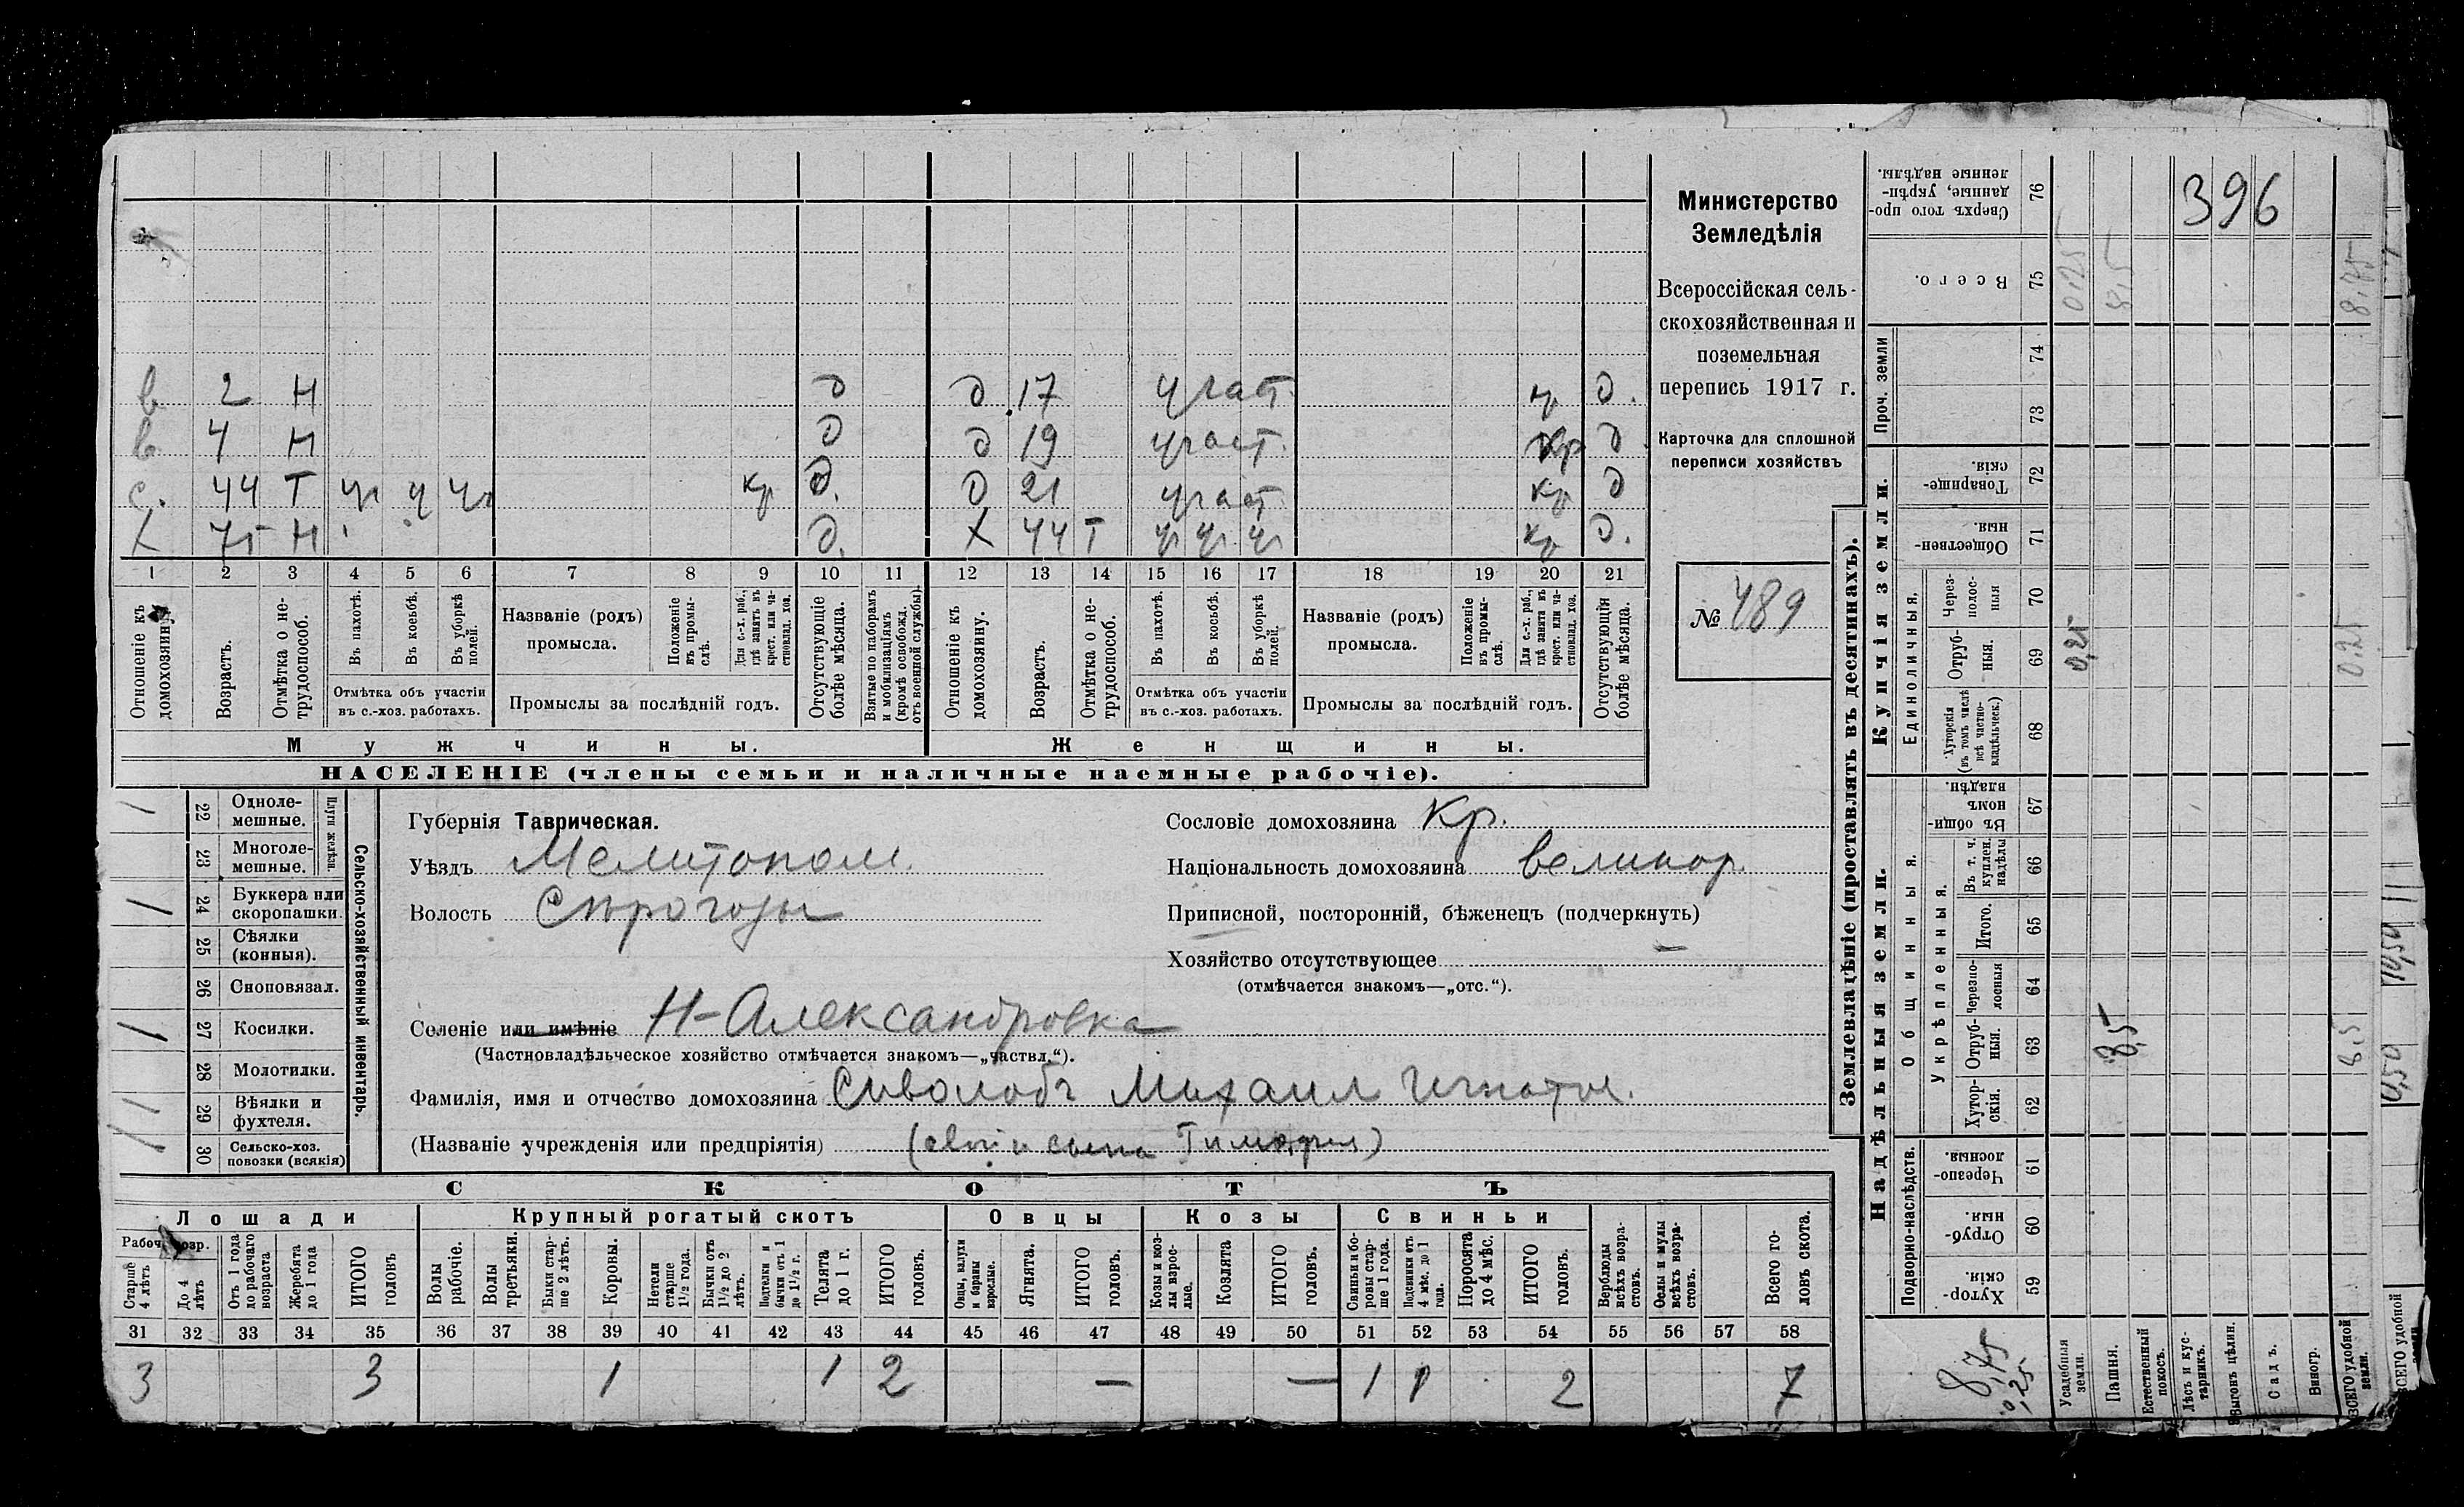 в 2 Н д д 17 участ. кр д.
в 4 Н д д 19 участ. кр д
с. 44 Т у у у кр д. д 21 участ кр д
X 75 Н д. X 44 Т у у у кр д.
1 2 3 4 5 6 7 8 9 10 11 12 13 14 15 16 17 18 19 20 21
Отношеніе къ домохозяину.
Возрастъ.
Отмѣтка о нетрудоспособ.
Въ пахотѣ.
Въ косьбѣ.
Въ уборкѣ полей.
Отмѣтка объ участіи
въ с.-хоз. работахъ.
Названіе (родъ)
промысла.
Положеніе въ промыслѣ.
Для с.-х. раб., гдѣ занятъ въ крест. или частновлад. хоз.
Промыслы за послѣдній годъ.
Отсутствующіе болѣе мѣсяца.
Взятые по наборамъ и мобилизаціямъ (кромѣ освобожд. отъ военной службы).
Отношеніе къ домохозяину.
Возрастъ.
Отмѣтка о нетрудоспособ.
Въ пахотѣ.
Въ косьбѣ.
Въ уборкѣ полей.
Отмѣтка объ участіи
въ с.-хоз. работахъ.
Названіе (родъ)
промысла.
Положеніе въ промыслѣ.
Для с.-х. раб., гдѣ занята въ крест. или частновлад. хоз.
Промыслы за послѣдній годъ.
Отсутствующія болѣе мѣсяца.
Мужчины. Женщины.
НАСЕЛЕНІЕ (члены семьи и наличные наемные рабочіе).
Министерство
Земледѣлія
Всероссійская сель-
скохозяйственная и
поземельная
перепись 1917 г.
Карточка для сплошной
переписи хозяйствъ
№ 489
Сельско-хозяйственный инвентарь.
Плуги желѣзн.
1 22 Однолемешные.
23 Многолемешные.
1 24 Буккера или скоропашки.
25 Сѣялки (конныя).
26 Сноповязал.
1 27 Косилки.
28 Молотилки.
1 29 Вѣялки и фухтеля.
30 Сельско-хоз. повозки (всякія)
Губернія Таврическая.
Уѣздъ Мелитопол.
Волость Сѣрогозы
Селеніе или имѣніе Н-Александровка
(Частновладѣльческое хозяйство отмѣчается знакомъ—„частвл.“).
Фамилія, имя и отчество домохозяина Сиволобъ Михаил Игнатъе.
(Названіе учрежденія или предпріятія) (свой и сына Тимофея)
Сословіе домохозяина Кр.
Національность домохозяина великор.
Приписной, посторонній, бѣженецъ (подчеркнуть)
Хозяйство отсутствующее —
(отмѣчается знакомъ—„отс.“).
СКОТЪ
Лошади Крупный рогатый скотъ Овцы Козы Свиньи
Рабоч. возр.
Старше 4 лѣтъ
До 4 лѣтъ
Отъ 1 года до рабочаго возраста
Жеребята до 1 года
ИТОГО головъ
Волы рабочіе.
Волы третьяки.
Быки старше 2 лѣтъ.
Коровы.
Нетели старше 1½ года.
Бычки отъ 1½ до 2 лѣтъ.
Подтелки и бычки отъ 1 до 1½ г.
Телята до 1 г.
ИТОГО головъ.
Овцы, валухи и бараны взрослые.
Ягнята.
ИТОГО головъ.
Козы и козлы взрослые.
Козлята
ИТОГО головъ.
Свиньи и боровы старше 1 года.
Подсвинки отъ 4 мѣс. до 1 года.
Поросята до 4 мѣс.
ИТОГО головъ.
Верблюды всѣхъ возрастовъ.
Ослы и мулы всѣхъ возрастовъ.
Всего головъ скота.
31 32 33 34 35 36 37 38 39 40 41 42 43 44 45 46 47 48 49 50 51 52 53 54 55 56 57 58
3 3 1 1 2 — — 1 1 2 7
Землевладѣніе (проставлять въ десятинахъ).
Сверхъ того проданные, укрѣпленные надѣлы. 76 396
Всего. 75 0,25 8,5 8,75
Проч. земли
74
73
Купчія земли.
Товарищескія. 72
Общественныя. 71
Единоличныя.
Черезполосныя 70
Отрубныя. 69 0,25 0,25
Хуторскія (въ томъ числѣ всѣ частновладѣльческ.) 68
Надѣльныя земли.
Общинныя.
Въ общинномъ владѣн. 67
Укрѣпленныя.
Въ т. ч. куплен. надѣлы 66
Итого. 65
Черезполосныя 64
Отрубныя. 63 8,5 8,5
Хуторскія. 62
Подворно-наслѣдств.
Черезполосныя. 61
Отрубныя. 60
Хуторскія. 59
8,75
0,25
Усадебныя земли.
Пашня.
Естественный покосъ.
Лѣсъ и кустарникъ.
Выгонъ цѣлин.
Садъ.
Виногр.
ВСЕГО удобной земли.
ВСЕГО удобной